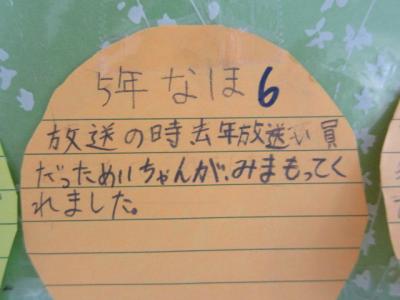 5年 なほ 6
放送の時、去年放送い員
だっためいちゃんが、みまもってく
れました。